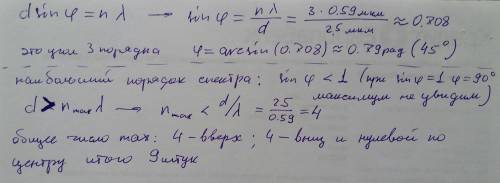 d sin φ = n λ → sin φ = nλ/d = 3 · 0.59 мкм / 2,5 мкм ≈ 0.708
это угол 3 порядка φ = arcsin(0.708) ≈ 0.79 рад (45°)
наибольший порядок спектра: sin φ < 1 (при sin φ = 1 φ = 90°
максимум не увидим)
d > n max λ → n max < d/λ = 2.5/0.59 = 4
общее число max: 4 - вверх ; 4 - вниз и нулевой по
центру итого 9 штук